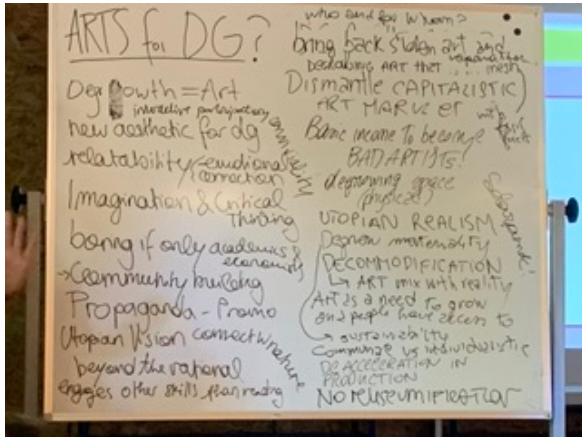 ARTS for DG?
Degrowth = Art
interactive participatory
new aesthetic for dg
relatability / emotional connection
Imagination & Critical Thinking
boring if only academics & economists
→ Community building
Propaganda - Promo
Utopian Vision connect w nature
beyond the rational
engages other skills than reading
who and for whom?
bring back stolen art and
ART that
DISMANTLE CAPITALISTIC
ART MARKET
Basic income to become
BAD ARTISTS!
degrowing space
(physical)
Solarpunk!
UTOPIAN REALISM
Degrow materiality
DECOMMODIFICATION
↳ ART mix with reality
Art as a need to grow
and people have access to
→ sustainability
Commune vs individualistic
DEACCELERATION IN
PRODUCTION
NO MUSEUMIFICATION